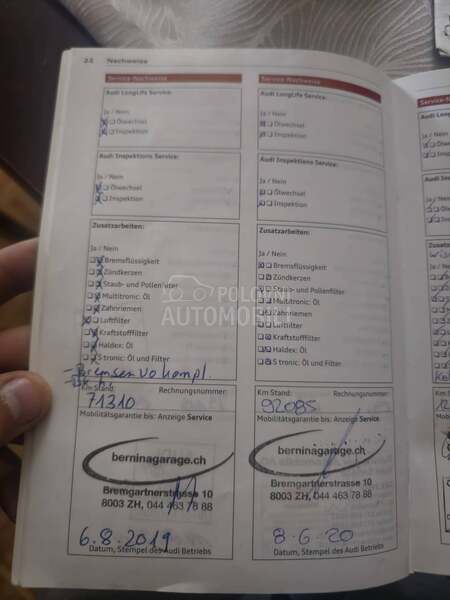 22 Nachweise
Service-Nachweise
Audi LongLife Service:
Ja / Nein
Ölwechsel
Inspektion
Audi Inspektions Service:
Ja / Nein
Ölwechsel
Inspektion
Zusatzarbeiten:
Ja / Nein
Bremsflüssigkeit
Zündkerzen
Staub- und Pollenfilter
Multitronic: Öl
Zahnriemen
Luftfilter
Kraftstofffilter
Haldex: Öl
S tronic: Öl und Filter
Bremsen Vo kompl.
Km Stand: Rechnungsnummer:
71310
Mobilitätsgarantie bis: Anzeige Service
berninagarage.ch
Bremgartnerstrasse 10
8003 ZH, 044 463 78 88
6.8.2019
Datum, Stempel des Audi Betriebs
Service-Nachweise
Audi LongLife Service:
Ja / Nein
Ölwechsel
Inspektion
Audi Inspektions Service:
Ja / Nein
Ölwechsel
Inspektion
Zusatzarbeiten:
Ja / Nein
Bremsflüssigkeit
Zündkerzen
Staub- und Pollenfilter
Multitronic: Öl
Zahnriemen
Luftfilter
Kraftstofffilter
Haldex: Öl
S tronic: Öl und Filter
Km Stand: Rechnungsnummer:
92085
Mobilitätsgarantie bis: Anzeige Service
berninagarage.ch
Bremgartnerstrasse 10
8003 ZH, 044 463 78 88
8.6.20
Datum, Stempel des Audi Betriebs
Service-Nachweise
Ja / Nein
Ja / Nein
Ja / Nein
POLOVNI
AUTOMOBILI